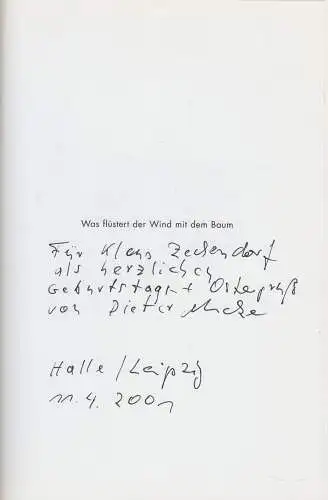 Was flüstert der Wind mit dem Baum
Für Klaus Zeckendorf
als herzlichen
Geburtstags + Ostergruß
von Dieter Mucke
Halle/Leipzig
11.4.2001